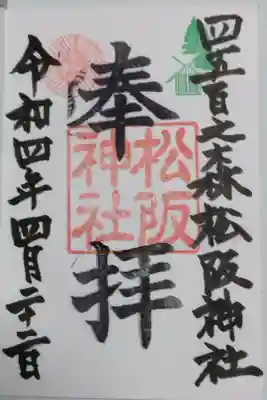 四五百之森松阪神社
奉拝
松阪神社
令和四年四月二十二日